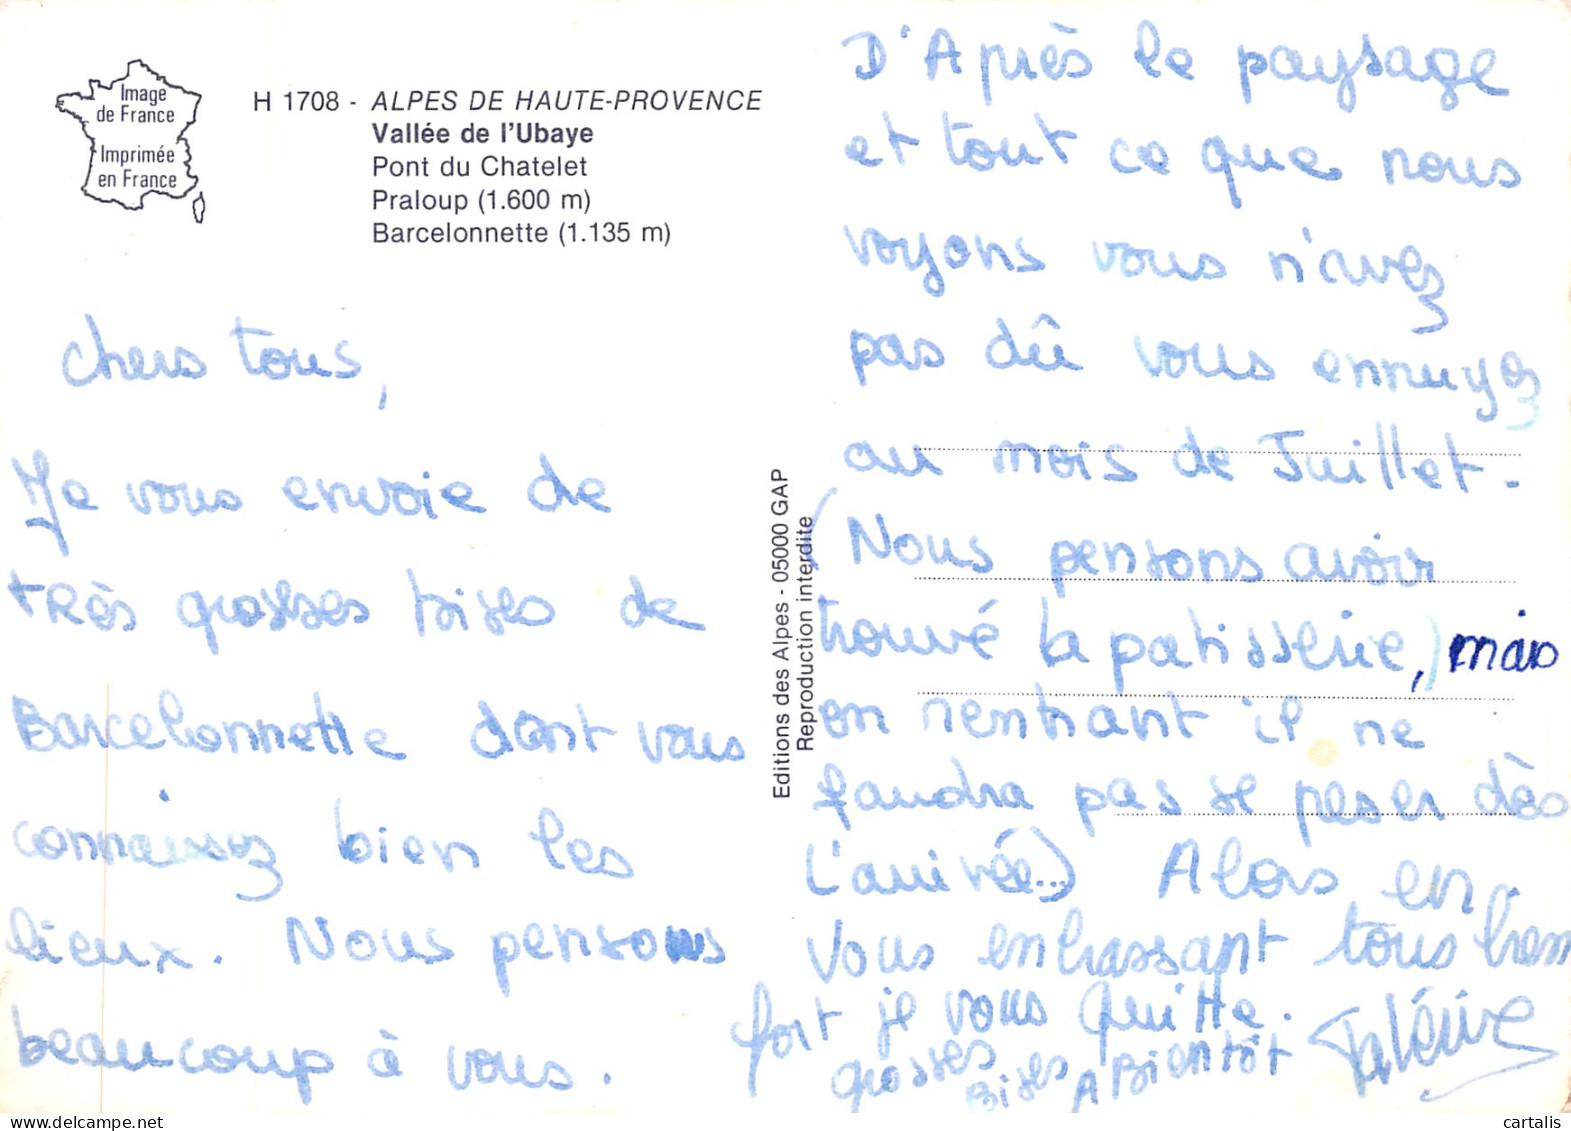 Image
de France
Imprimée
en France
H 1708 - ALPES DE HAUTE-PROVENCE
Vallée de l'Ubaye
Pont du Chatelet
Praloup (1.600 m)
Barcelonnette (1.135 m)
chers tous,
Je vous envoie de
très grosses bises de
Barcelonnette dont vous
connaissez bien les
lieux. Nous pensons
beaucoup à vous.
Editions des Alpes - 05000 GAP
Reproduction interdite
D'Après le paysage
et tout ce que nous
voyons vous n'avez
pas dû vous ennuyez
au mois de Juillet.
(Nous pensons avoir
trouvé la patisserie,) mais
en rentrant il ne
faudra pas se peser dès
l'arrivée...) Alors en
vous embrassant tous bien
fort je vous quitte.
grosses
Bises A Bientôt
cartalis